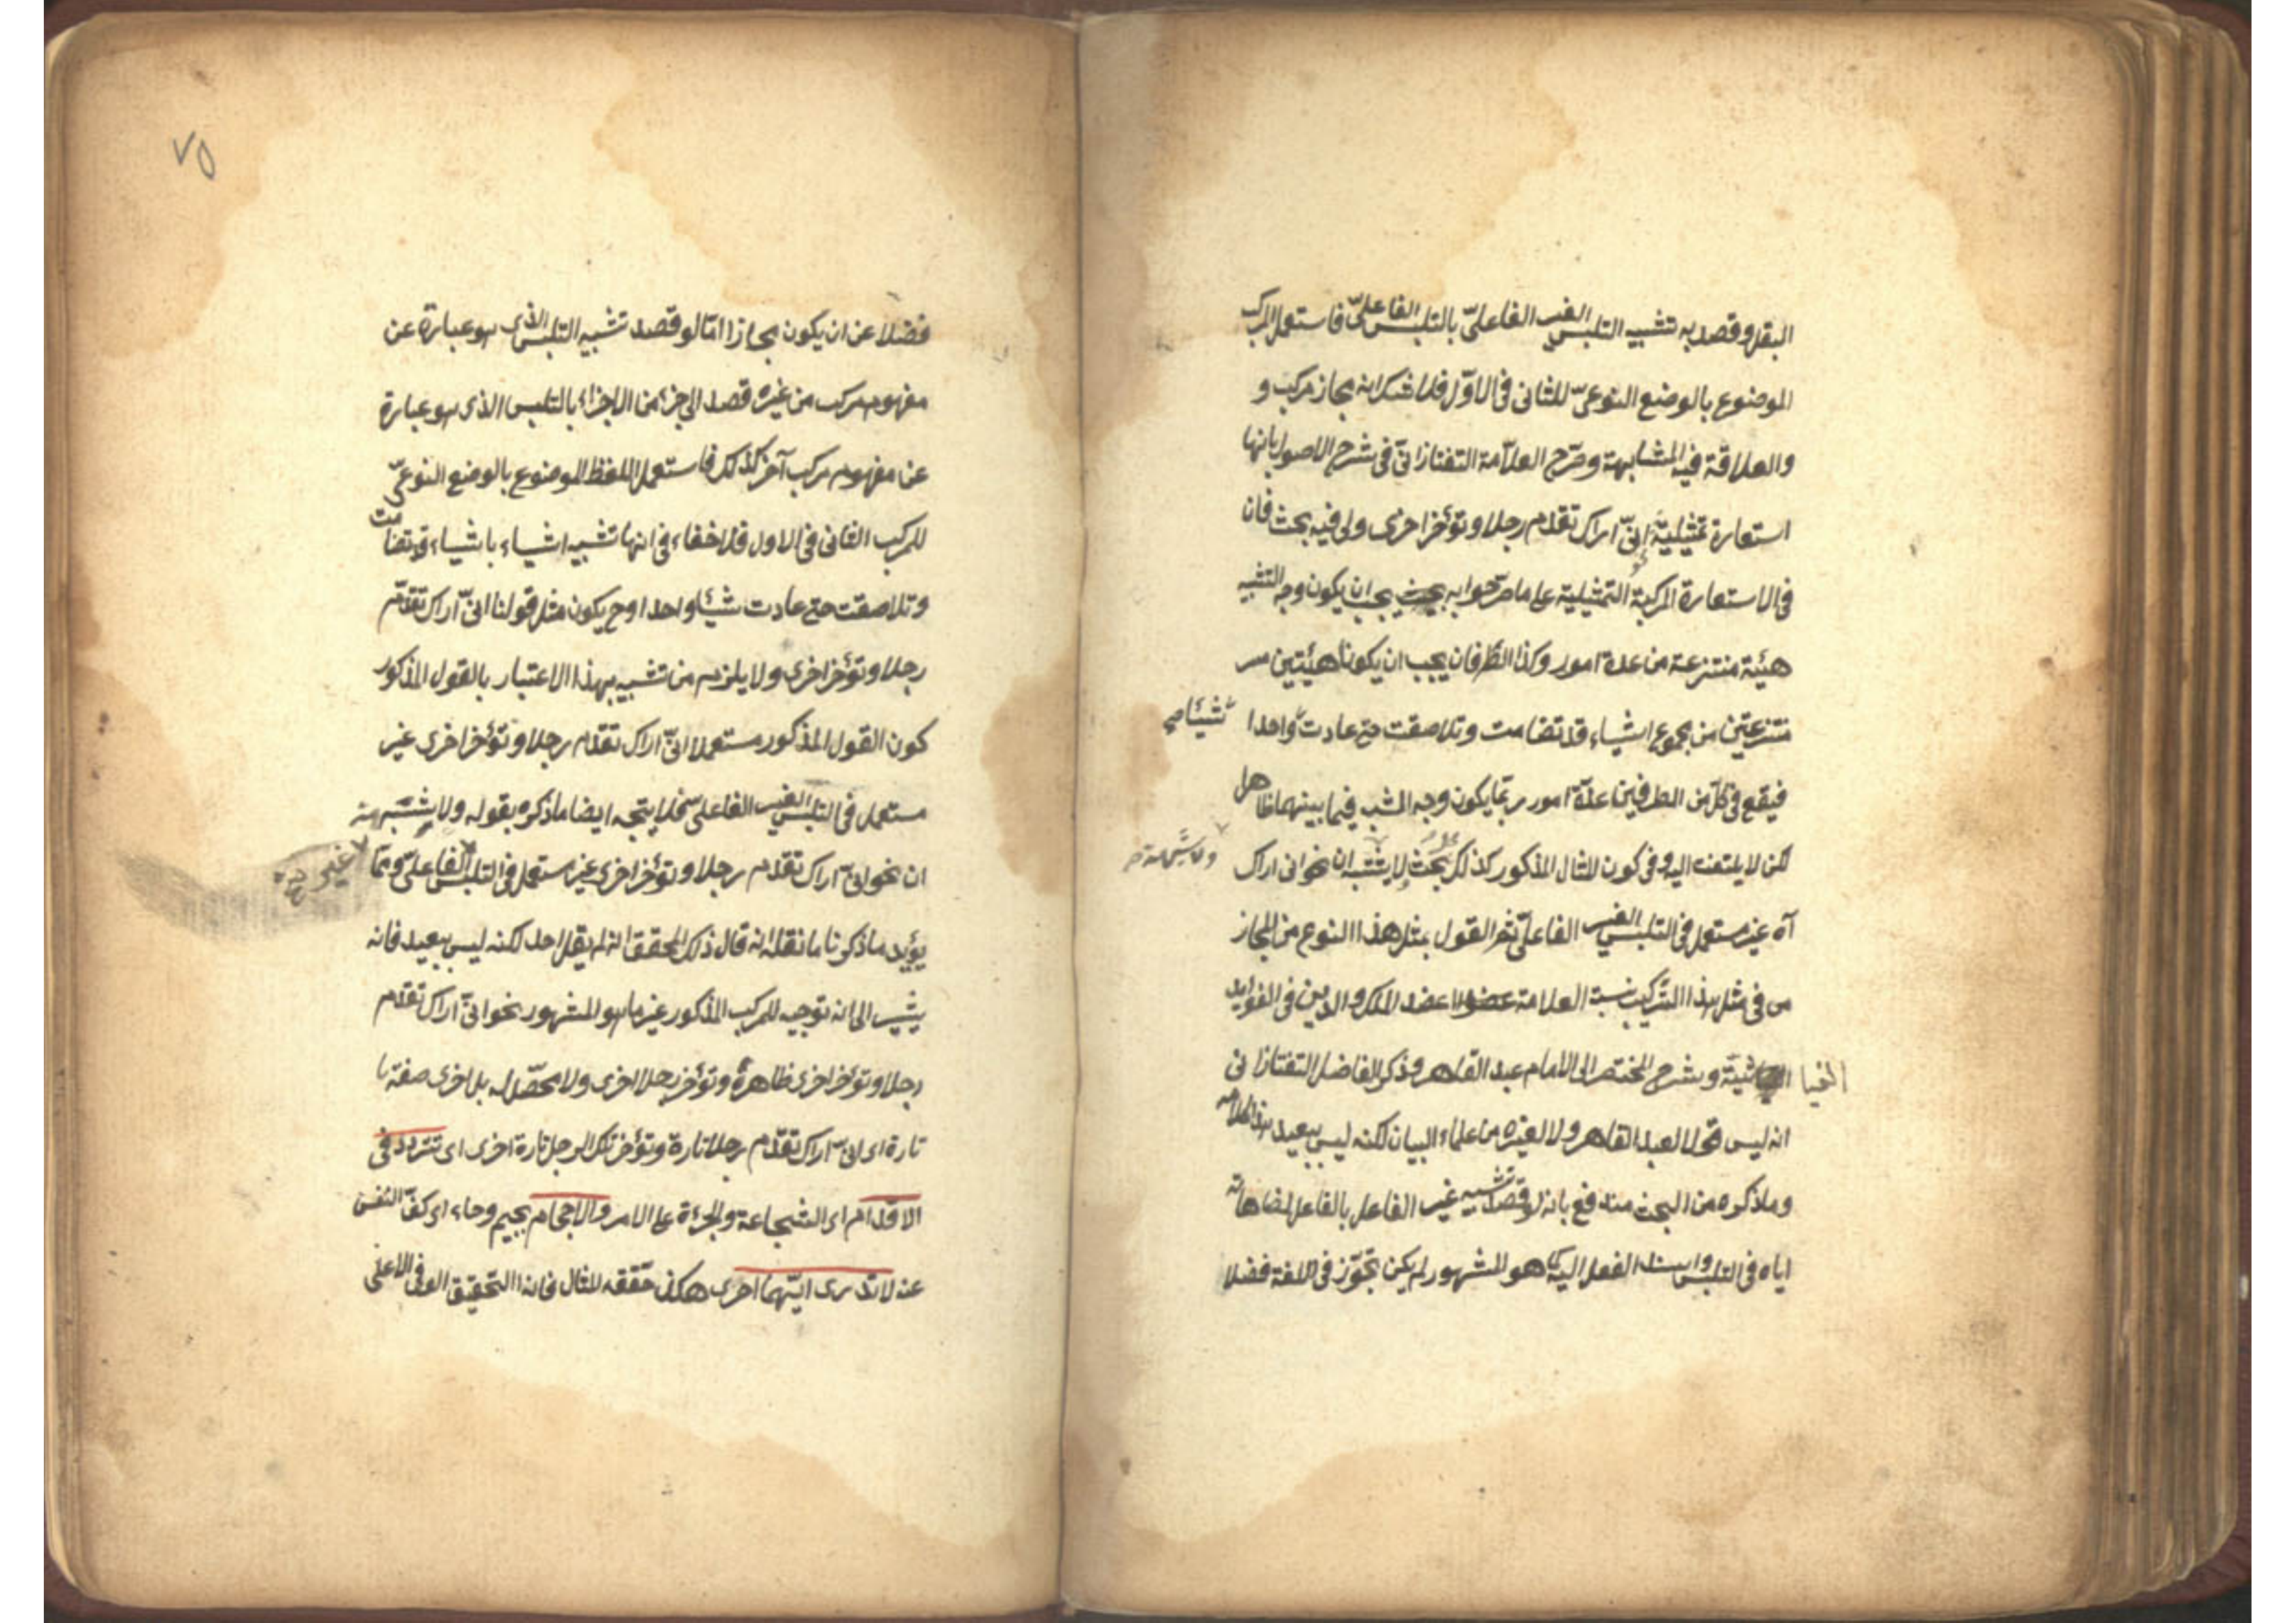 البقل وقصد به تشبيه التلبس الغير الفاعلىّ بالتلبس الفاعلىّ فاستعمل المركب
الموضوع بالوضع النوعىّ للثانى فى الاوّل فلا شك انه مجاز مركب و
والعلاقة فيه المشابهة وصرّح العلاّمة التفتازانىّ فى شرح الاصول بانها
استعارة تمثيلية إنىّ اراك تقدّم رجلا وتؤخر اخرى ولى فيه بحث فان
فى الاستعارة المركبة التمثيلية على ما صرّحوا به يجب ان يكون وجه التشبيه
هيئة منتزعة من عدة امور وكذا الطرفان يجب ان يكونا هيئتين
منتزعتين من مجموع اشياء قد تضامت وتلاصقت حتى عادت واحدا
شيئا صح
فيقع فى كل من الطرفين عدّة امور ربما يكون وجه الشبه فيما بينهما ظاهر
لكن لا يلتفت اليه وفى كون المثال المذكور كذلك بحث لا يشتبه ان نحو انى اراك
آه غير مستعمل فى التلبس الغير الفاعلىّ ثم القول بمثل هذا النوع من المجاز
فى مثل هذا التركيب نسبة العلامة عضد الملك والدين فى الفوايد
الغيا ثية وشرح المختصر الى الامام عبد القاهر وذكر الفاضل التفتازانى
انه ليس قولا لعبد القاهر ولا لغيره من علماء البيان لكنه ليس ببعيد هذا كلامه
وما ذكره من البحث مندفع بانه لو قصد تشبيه غير الفاعل بالفاعل لمضاهاته
اياه فى التلبس واسناد الفعل اليه كما هو المشهور لم يكن تجوّز فى اللغة فضلا
٧٥
فضلا عن ان يكون مجازا امّا لو قصد تشبيه التلبس الذى هو عبارة عن
مفهوم مركب من غيره قصد الى جزء من الاجزاء بالتلبس الذى هو عبارة
عن مفهوم مركب آخر كذلك فاستعمل اللفظ الموضوع بالوضع النوعىّ
للمركب الثانى فى الاول فلا خفاء فى انها تشبيه اشياء باشياء قد تضامت
وتلاصقت حتى عادت شيئا واحدا وح يكون مثل قولنا انىّ اراك تقدّم
رجلا وتؤخر اخرى ولا يلزم من تشبيه بهذا الاعتبار بالقول المذكور
كون القول المذكور مستعملا انىّ اراك تقدّم رجلا وتؤخر اخرى غير
مستعمل فى التلبس الغير الفاعلىّ فلا يتجه ايضا ما ذكره بقوله ولا يشتبه
ان نحو انىّ اراك تقدّم رجلا وتؤخر اخرى غير مستعمل فى التلبس الفاعلىّ وممّا
غير صح
يؤيد ما ذكرنا ما نقل انه قال ذلك المحقق انه لم يقل احد لكنه ليس ببعيد فانه
يشير الى انه توجيه للمركب المذكور غير ما هو المشهور نحو انىّ اراك تقدّم
رجلا وتؤخر اخرى ظاهره وتؤخر رجلا اخرى ولا محصّل له بل اخرى صفة
تارة اى انىّ اراك تقدّم رجلا تارة وتؤخر تلك الرجل تارة اخرى اى تتردد فى
الاقدام اى الشجاعة والجرءة على الامر والاحجام بجيم وحاء اى كفّ النفس
عنه لا تدرى ايّهما احرى هكذا حققه المثال فان هذا التحقيق